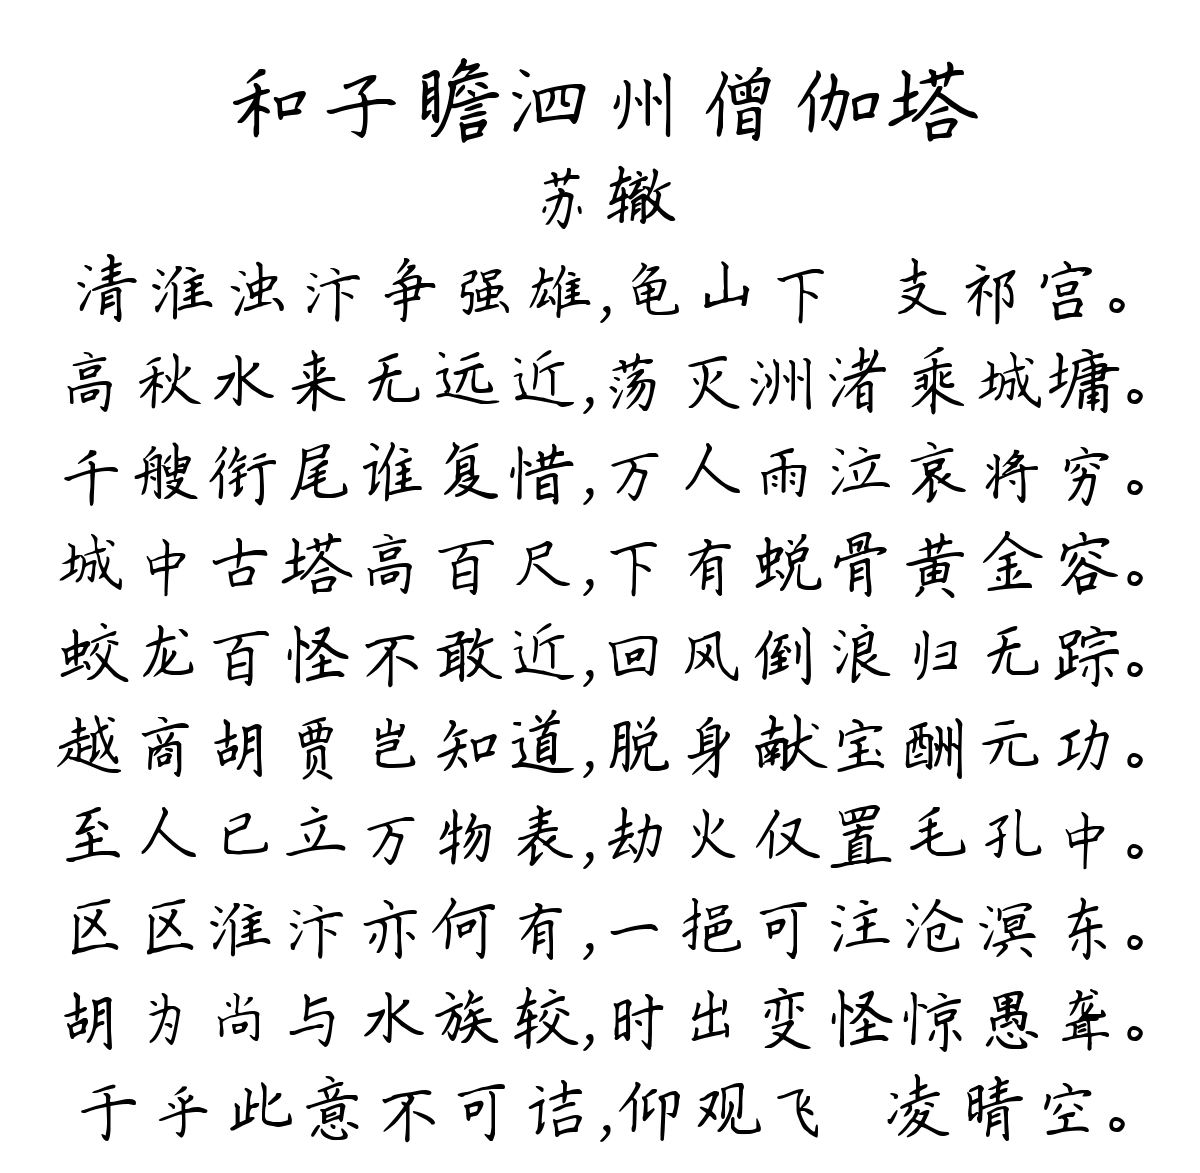 和子瞻泗州僧伽塔
苏辙
清淮浊汴争强雄,龟山下 支祁宫。
高秋水来无远近,荡灭洲渚乘城墉。
千艘衔尾谁复惜,万人雨泣哀将穷。
城中古塔高百尺,下有蜕骨黄金容。
蛟龙百怪不敢近,回风倒浪归无踪。
越商胡贾岂知道,脱身献宝酬元功。
至人已立万物表,劫火仅置毛孔中。
区区淮汴亦何有,一挹可注沧溟东。
胡为尚与水族较,时出变怪惊愚聋。
于乎此意不可诘,仰观飞 凌晴空。